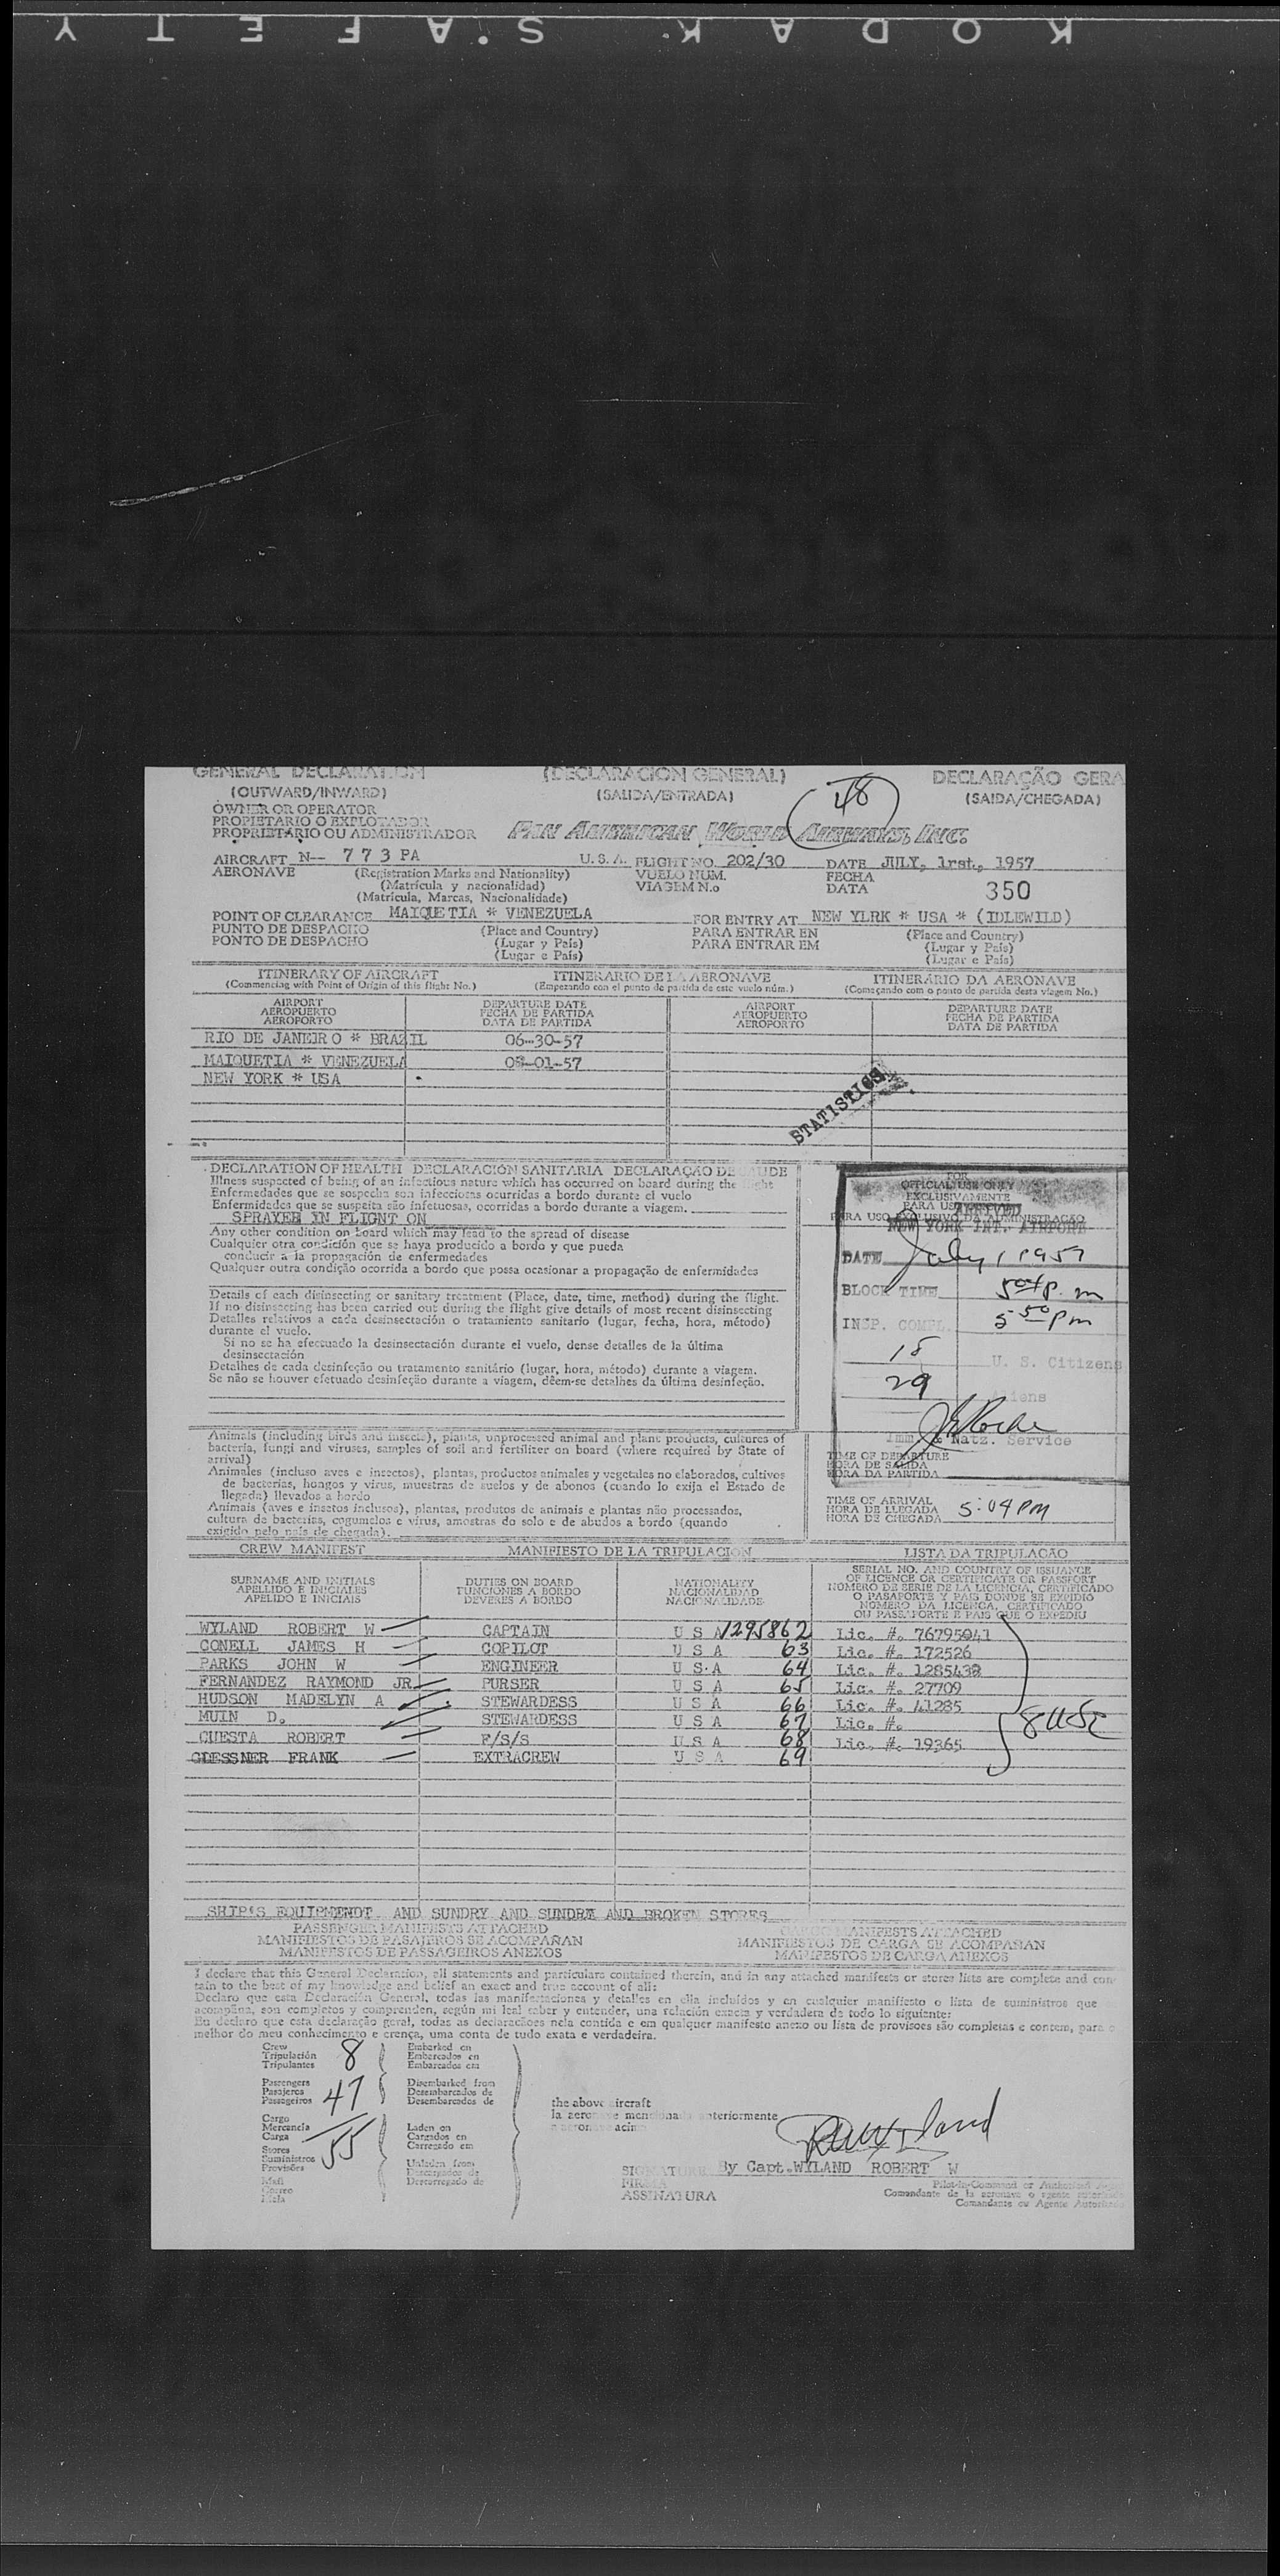 KODAK S.AFETY
GENERAL DECLARATION (DECLARACION GENERAL) DECLARAÇÃO GERA
(OUTWARD/INWARD) (SALIDA/ENTRADA) 48 (SAIDA/CHEGADA)
OWNER OR OPERATOR
PROPIETARIO O EXPLOTADOR
PROPRIETÁRIO OU ADMINISTRADOR PAN AMERICAN WORLD AIRWAYS, INC.
AIRCRAFT N-- 7 7 3 PA U.S.A. FLIGHT NO. 202/30 DATE JULY, 1rst., 1957
AERONAVE (Registration Marks and Nationality) VUELO NUM. FECHA
(Matrícula y nacionalidad) VIAGEM N.o DATA 350
(Matrícula, Marcas, Nacionalidade)
POINT OF CLEARANCE MAIQUETIA * VENEZUELA FOR ENTRY AT NEW YLRK * USA * (IDLEWILD)
PUNTO DE DESPACHO (Place and Country) PARA ENTRAR EN (Place and Country)
PONTO DE DESPACHO (Lugar y País) PARA ENTRAR EM (Lugar y País)
(Lugar e País) (Lugar e País)
ITINERARY OF AIRCRAFT ITINERARIO DE LA AERONAVE ITINERÁRIO DA AERONAVE
(Commencing with Point of Origin of this flight No.) (Empezando con el punto de partida de este vuelo núm.) (Começando com o ponto de partida desta viagem No.)
AIRPORT DEPARTURE DATE AIRPORT DEPARTURE DATE
AEROPUERTO FECHA DE PARTIDA AEROPUERTO FECHA DE PARTIDA
AEROPORTO DATA DE PARTIDA AEROPORTO DATA DE PARTIDA
RIO DE JANEIRO * BRAZIL 06-30-57
MAIQUETIA * VENEZUELA 08-01-57
NEW YORK * USA
STATISTICS
DECLARATION OF HEALTH DECLARACIÓN SANITARIA DECLARAÇAO DE SAUDE
Illness suspected of being of an infectious nature which has occurred on board during the flight
Enfermedades que se sospecha son infecciosas ocurridas a bordo durante el vuelo
Enfermidades que se suspeita são infetuosas, ocorridas a bordo durante a viagem.
SPRAYED IN FLIGHT ON
Any other condition on board which may lead to the spread of disease
Cualquier otra condición que se haya producido a bordo y que pueda
conducir a la propagación de enfermedades
Qualquer outra condição ocorrida a bordo que possa ocasionar a propagação de enfermidades
Details of each disinsecting or sanitary treatment (Place, date, time, method) during the flight.
If no disinsecting has been carried out during the flight give details of most recent disinsecting
Detalles relativos a cada desinsectación o tratamiento sanitario (lugar, fecha, hora, método)
durante el vuelo.
Si no se ha efectuado la desinsectación durante el vuelo, dense detalles de la última
desinsectación
Detalhes de cada desinfeção ou tratamento sanitário (lugar, hora, método) durante a viagem.
Se não se houver efetuado desinfeção durante a viagem, dêem-se detalhes da última desinfeção.
FOR
OFFICIAL USE ONLY
EXCLUSIVAMENTE
PARA USO
ARRIVED
PARA USO EXCLUSIVO DA ADMINISTRAÇÃO
NEW YORK INT. AIRPORT
DATE July 1 1957
BLOCK TIME 5 04 p.m
INSP. COMPL. 5 50 pm
18 U. S. Citizens
29 Aliens
Imm. & Natz. Service
TIME OF DEPARTURE
HORA DE SALIDA
HORA DA PARTIDA
TIME OF ARRIVAL
HORA DE LLEGADA
HORA DE CHEGADA 5:04 PM
Animals (including birds and insects), plants, unprocessed animal and plant products, cultures of
bacteria, fungi and viruses, samples of soil and fertilizer on board (where required by State of
arrival)
Animales (incluso aves e insectos), plantas, productos animales y vegetales no elaborados, cultivos
de bacterias, hongos y virus, muestras de suelos y de abonos (cuando lo exija el Estado de
llegada) llevados a bordo
Animais (aves e insetos inclusos), plantas, produtos de animais e plantas não processados,
cultura de bactérias, cogumelos e virus, amostras do solo e de abudos a bordo (quando
exigido pelo país de chegada).
CREW MANIFEST MANIFIESTO DE LA TRIPULACION LISTA DA TRIPULAÇÃO
SURNAME AND INITIALS DUTIES ON BOARD NATIONALITY SERIAL NO. AND COUNTRY OF ISSUANCE
APELLIDO E INICIALES FUNCIONES A BORDO NACIONALIDAD OF LICENCE OR CERTIFICATE OR PASSPORT
APELIDO E INICIAIS DEVERES A BORDO NACIONALIDADE NÚMERO DE SERIE DE LA LICENCIA, CERTIFICADO
O PASAPORTE Y PAIS DONDE SE EXPIDIO
NÚMERO DA LICENÇA, CERTIFICADO
OU PASSAPORTE E PAIS QUE O EXPEDIU
WYLAND ROBERT W CAPTAIN U S A 1295862 Lic. #. 76795041
CONELL JAMES H COPILOT U S A 63 Lic. #. 172526
PARKS JOHN W ENGINEER U S A 64 Lic. #. 1285432
FERNANDEZ RAYMOND JR PURSER U S A 65 Lic. #. 27709
HUDSON MADELYN A STEWARDESS U S A 66 Lic. #. 41285
MUIN D. STEWARDESS U S A 67 Lic. #. 8 USC
CUESTA ROBERT F/S/S U S A 68 Lic. #. 19365
GLESSNER FRANK EXTRACREW U S A 69
SHIP'S EQUIPMENDT AND SUNDRY AND SUNDRY AND BROKEN STORES
PASSENGER MANIFESTS ATTACHED CARGO MANIFESTS ATTACHED
MANIFIESTOS DE PASAJEROS SE ACOMPAÑAN MANIFIESTOS DE CARGA SE ACOMPAÑAN
MANIFESTOS DE PASSAGEIROS ANEXOS MANIFESTOS DE CARGA ANEXOS
I declare that this General Declaration, all statements and particulars contained therein, and in any attached manifests or stores lists are complete and con-
tain to the best of my knowledge and belief an exact and true account of all:
Declaro que esta Declaración General, todas las manifestaciones y detalles en ella incluidos y en cualquier manifiesto o lista de suministros que
acompaña, son completos y comprenden, según mi leal saber y entender, una relación exacta y verdadera de todo lo siguiente:
Eu declaro que esta declaração geral, todas as declarações nela contida e em qualquer manifesto anexo ou lista de provisoes são completas e contem, para o
melhor do meu conhecimento e crença, uma conta de tudo exata e verdadeira.
Crew Embarked on
Tripulación 8 Embarcados en
Tripulantes Embarcados em
Passengers Disembarked from
Pasajeros 47 Desembarcados de
Passageiros Desembarcados de
the above aircraft
la aeronave mencionada anteriormente
a aeronave acima
Cargo
Mercancía Laden on
Carga Cargados en
Stores 55 Carregado em
Suministros
Provisões Unladen from
Mail Descargados de
Correo Descarregado de
Mala
RW Wyland
SIGNATURE By Capt. WYLAND ROBERT W
FIRMA Pilot-in-Command or Authorized Agent
ASSINATURA Comandante de la aeronave o agente autorizado
Comandante ou Agente Autorizado